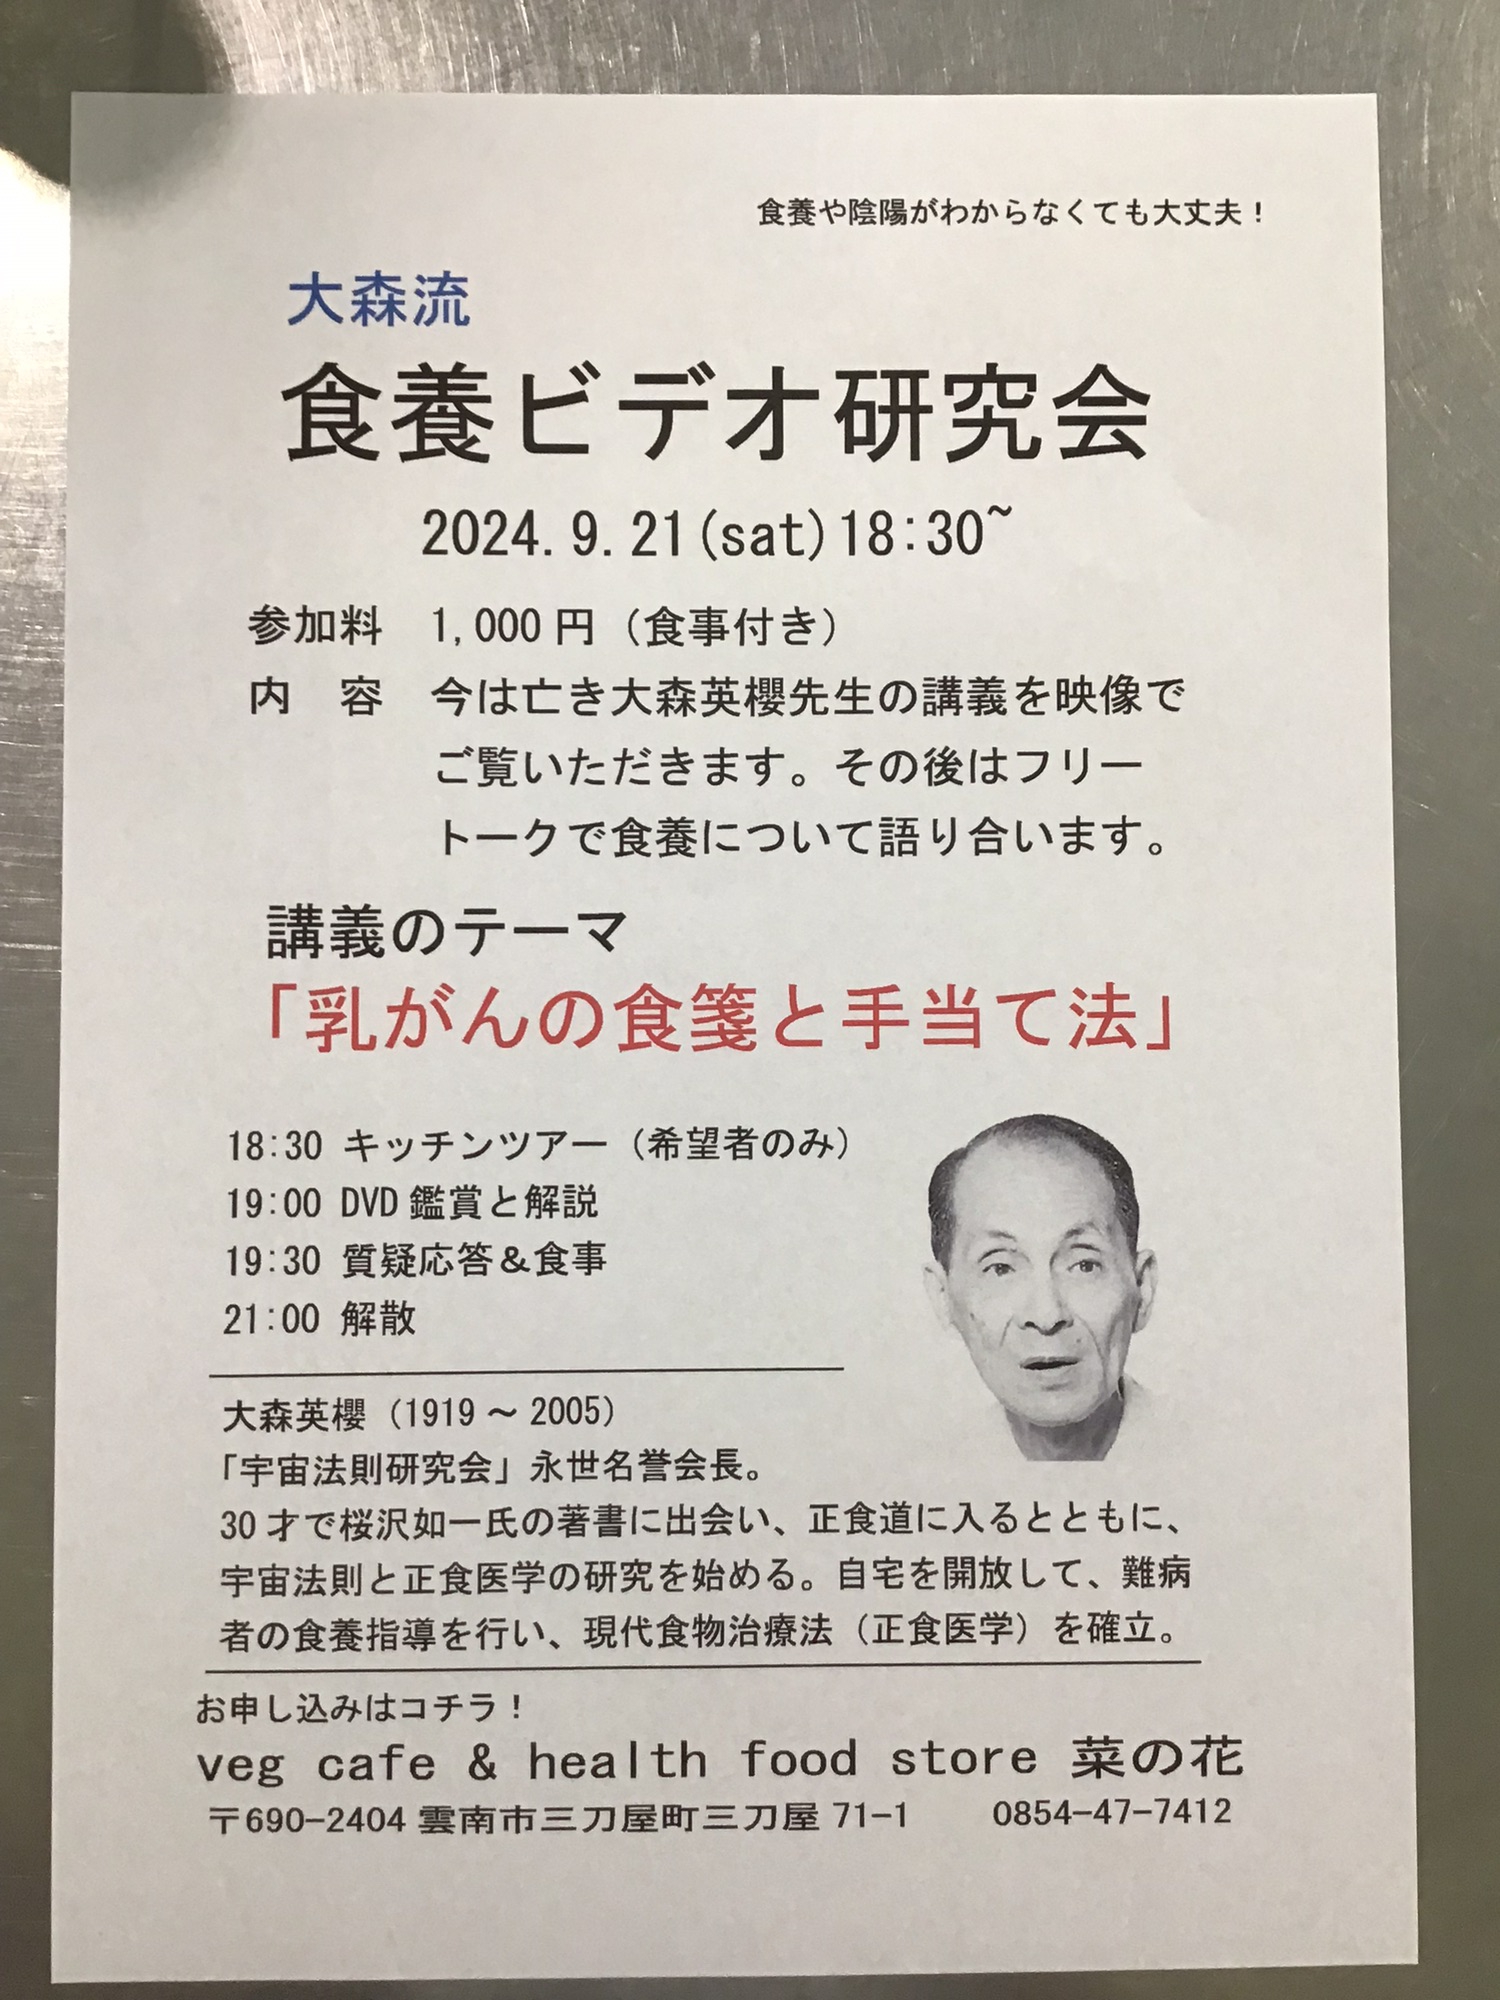 食養や陰陽がわからなくても大丈夫！
大森流
食養ビデオ研究会
2024.9.21(sat)18:30~
参加料　1,000円（食事付き）
内　容　今は亡き大森英櫻先生の講義を映像で
ご覧いただきます。その後はフリー
トークで食養について語り合います。
講義のテーマ
「乳がんの食箋と手当て法」
18:30 キッチンツアー（希望者のみ）
19:00 DVD鑑賞と解説
19:30 質疑応答＆食事
21:00 解散
大森英櫻（1919～2005）
「宇宙法則研究会」永世名誉会長。
30才で桜沢如一氏の著書に出会い、正食道に入るとともに、
宇宙法則と正食医学の研究を始める。自宅を開放して、難病
者の食養指導を行い、現代食物治療法（正食医学）を確立。
お申し込みはコチラ！
veg cafe & health food store 菜の花
〒690-2404 雲南市三刀屋町三刀屋 71-1　0854-47-7412